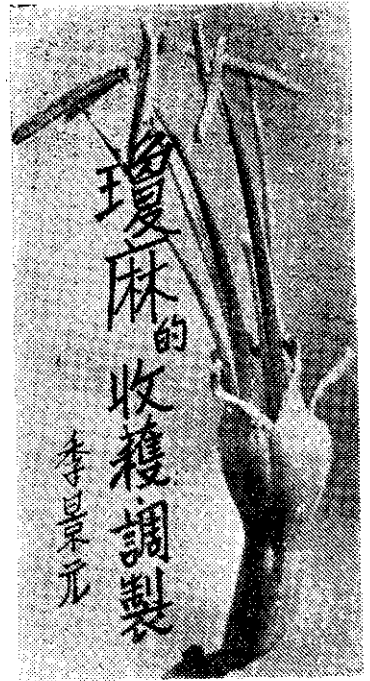 瓊麻的收穫·調製
李景元